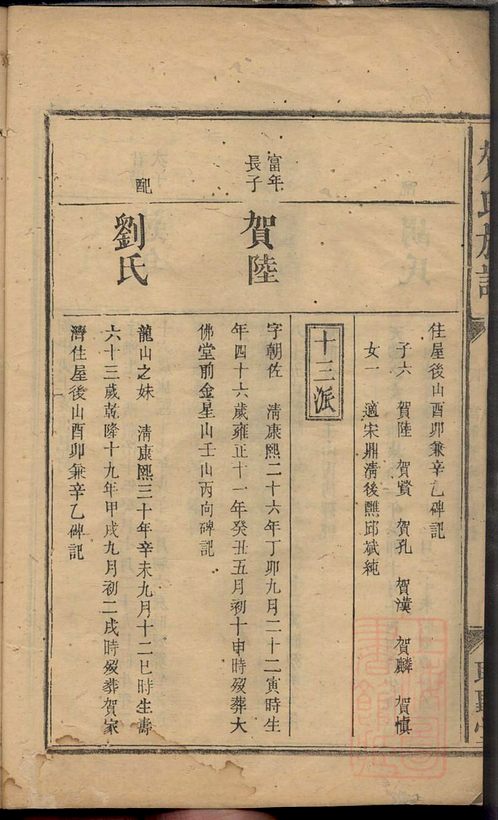 住屋後山酉卯兼辛乙碑記
子六 賀陸 賀贒 賀孔 賀漢 賀麟 賀慎
女一 適宋鼎清後熈邱斌純
十三派
富年
長子
賀陸
字朝佐 清康熙二十六年丁卯九月二十二寅時生
年四十六歲雍正十一年癸丑五月初十申時歿葬大
佛堂前金星山壬山丙向碑記
配
劉氏
龍山之妹 清康熙三十年辛未九月十二巳時生壽
六十三歲乾隆十九年甲戌九月初二戌時歿葬賀家
濟住屋後山酉卯兼辛乙碑記